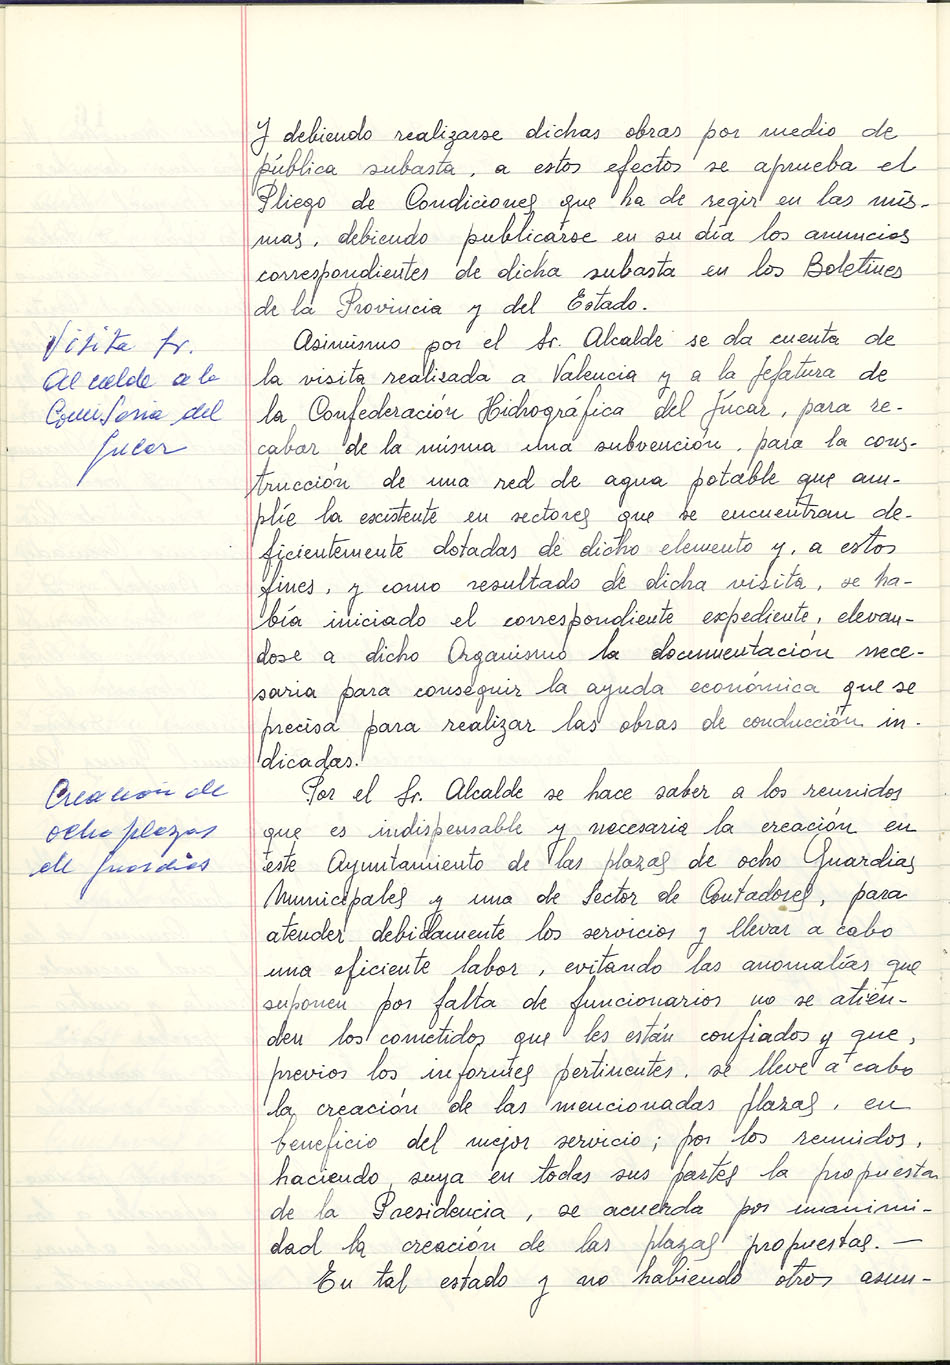 Y debiendo realizarse dichas obras por medio de
pública subasta, a estos efectos se aprueba el
Pliego de Condiciones que ha de regir en las mis-
mas, debiendo publicarse en su día los anuncios
correspondientes de dicha subasta en los Boletines
de la Provincia y del Estado.
Visita Sr.
Alcalde a la
Comisaria del
Jucar
Asimismo por el Sr. Alcalde se da cuenta de
la visita realizada a Valencia y a la Jefatura de
la Confederación Hidrográfica del Júcar, para re-
cabar de la misma una subvención, para la cons-
trucción de una red de agua potable que am-
plíe la existente en sectores que se encuentran de-
ficientemente dotadas de dicho elemento y, a estos
fines, y como resultado de dicha visita, se ha-
bía iniciado el correspondiente expediente, elevan-
dose a dicho Organismo la documentación nece-
saria para conseguir la ayuda económica que se
precisa para realizar las obras de conducción in-
dicadas.
Creacion de
ocho plazas
de guardias
Por el Sr. Alcalde se hace saber a los reunidos
que es indispensable y necesaria la creación en
este Ayuntamiento de las plazas de ocho Guardias
Municipales y una de Lector de Contadores, para
atender debidamente los servicios y llevar a cabo
una eficiente labor, evitando las anomalías que
suponen por falta de funcionarios no se atien-
den los cometidos que les están confiados y que,
previos los informes pertinentes, se lleve a cabo
la creación de las mencionadas plazas, en
beneficio del mejor servicio; por los reunidos,
haciendo suya en todas sus partes la propuesta
de la Presidencia, se acuerda por unanimi-
dad la creación de las plazas propuestas. —
En tal estado y no habiendo otros asun-